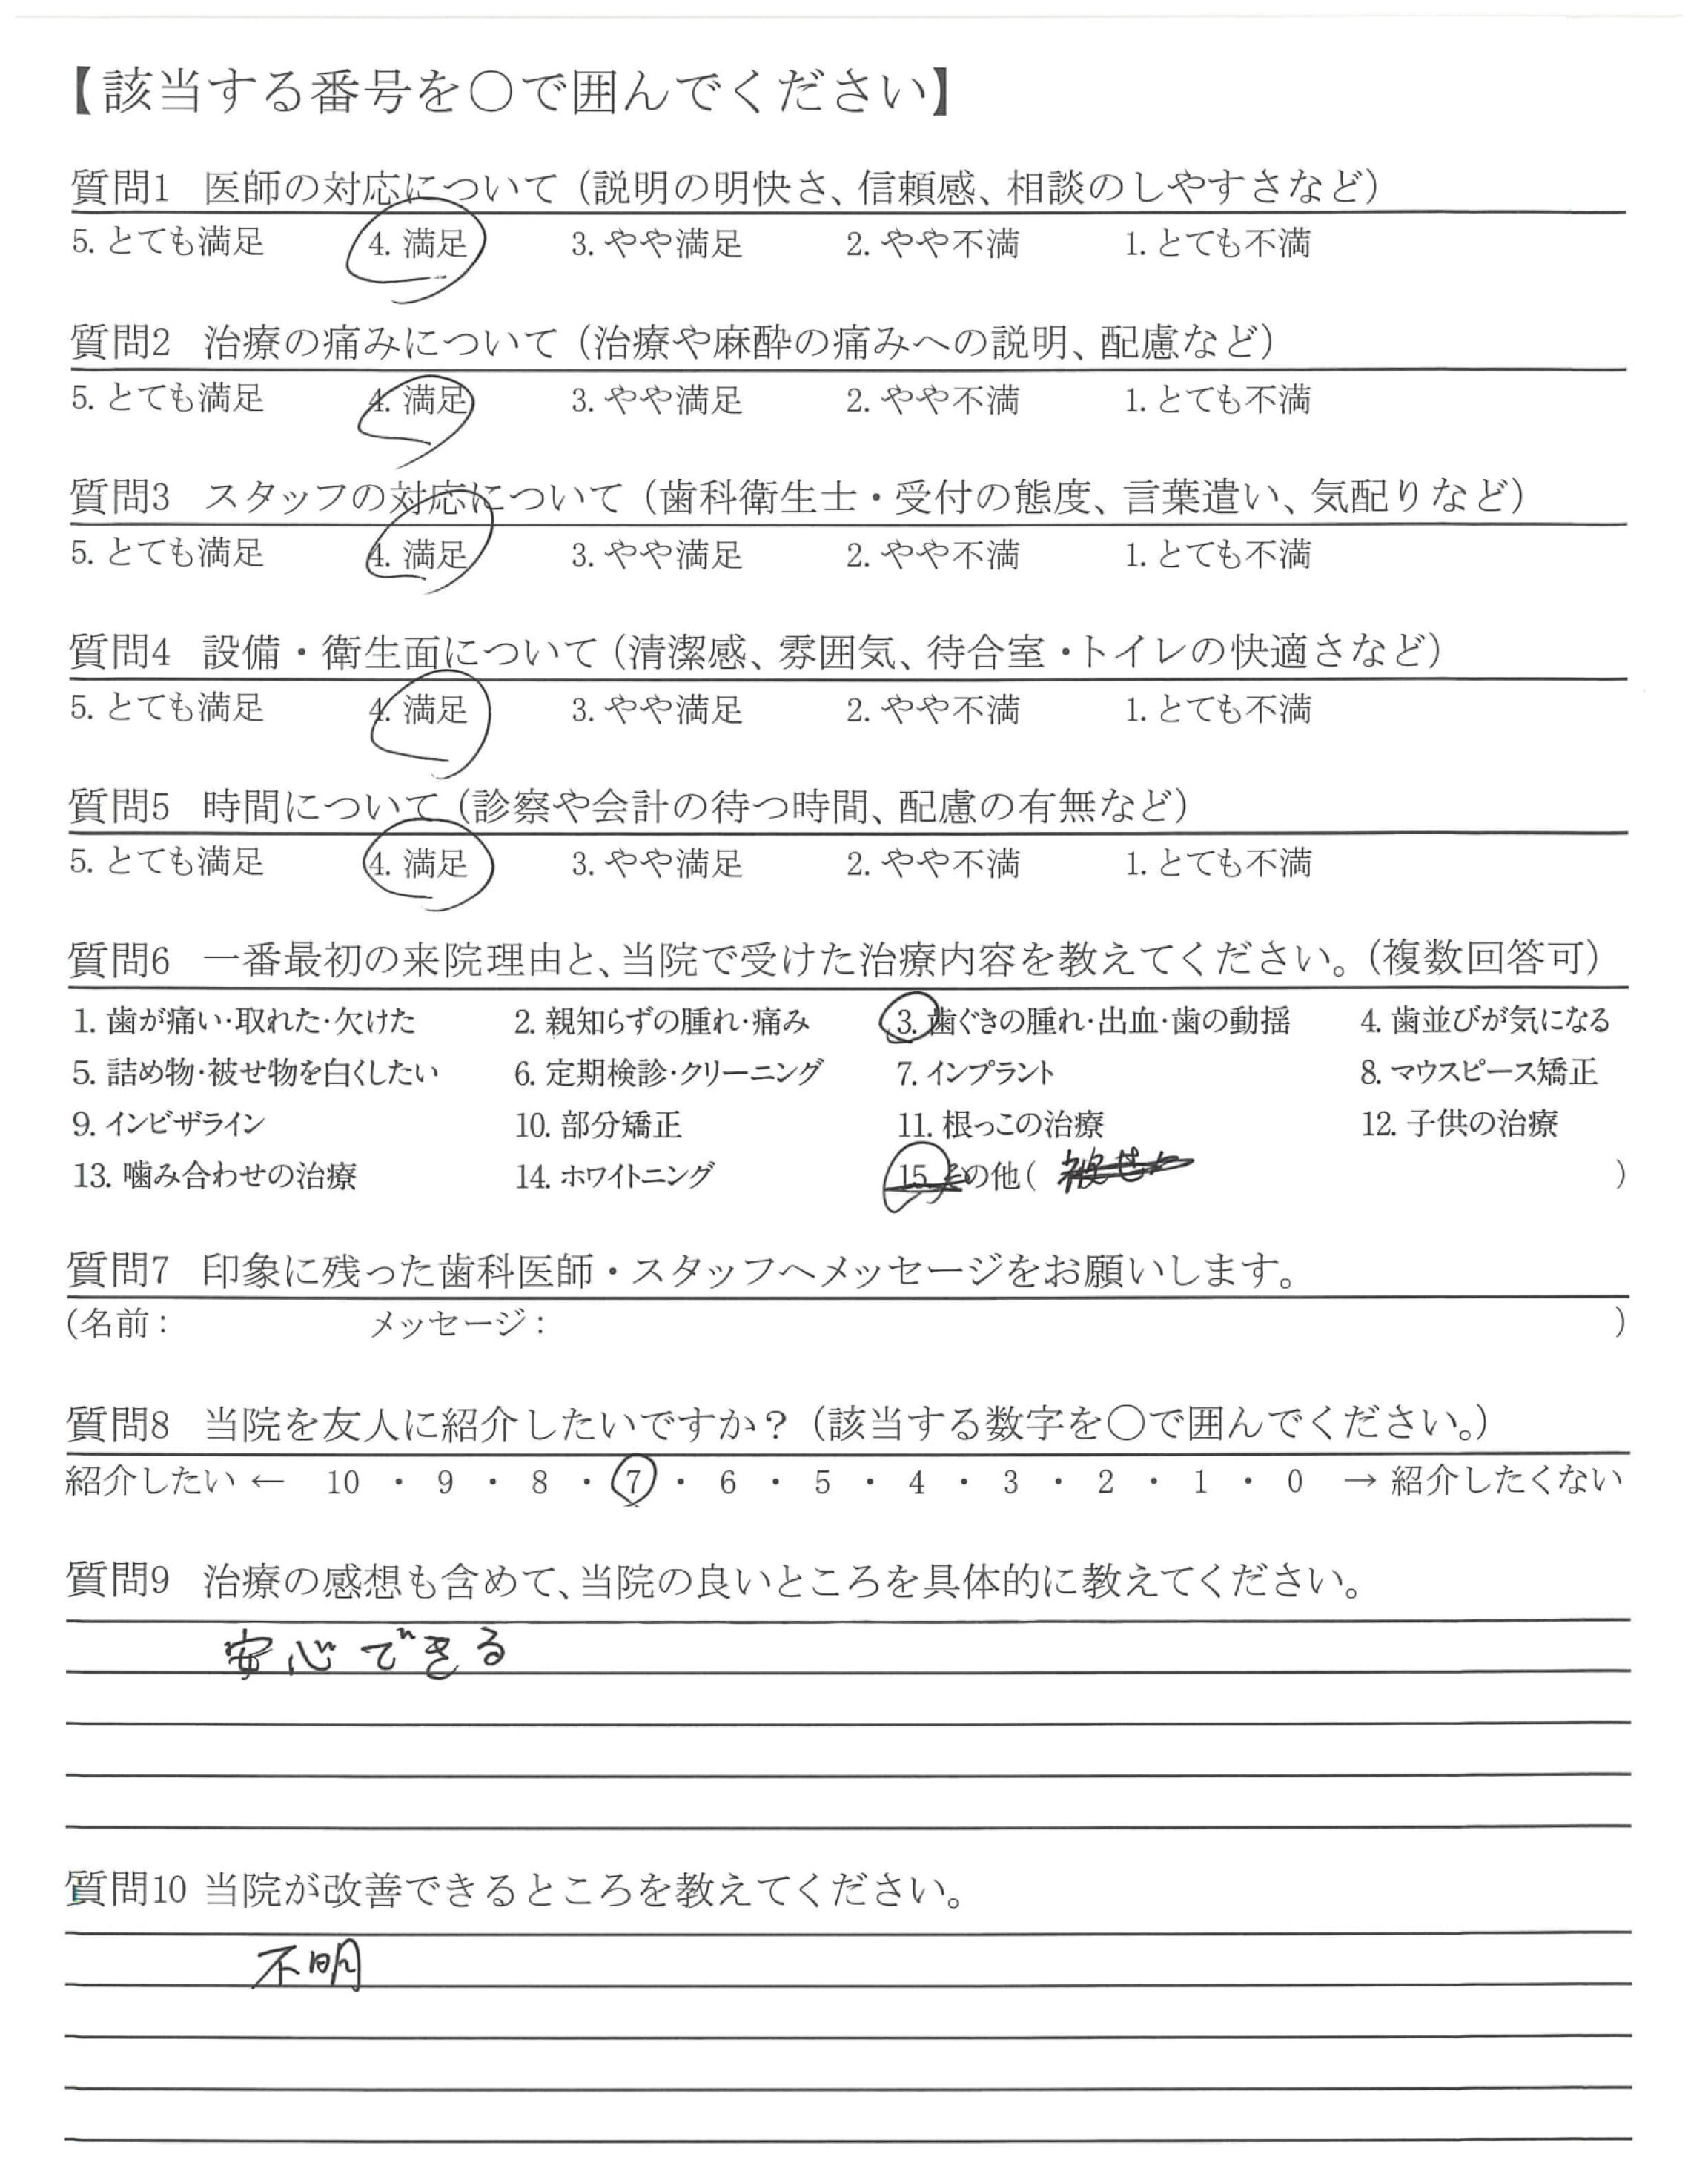 【該当する番号を○で囲んでください】
質問1 医師の対応について（説明の明快さ、信頼感、相談のしやすさなど）
5. とても満足 4. 満足 3. やや満足 2. やや不満 1. とても不満
質問2 治療の痛みについて（治療や麻酔の痛みへの説明、配慮など）
5. とても満足 4. 満足 3. やや満足 2. やや不満 1. とても不満
質問3 スタッフの対応について（歯科衛生士・受付の態度、言葉遣い、気配りなど）
5. とても満足 4. 満足 3. やや満足 2. やや不満 1. とても不満
質問4 設備・衛生面について（清潔感、雰囲気、待合室・トイレの快適さなど）
5. とても満足 4. 満足 3. やや満足 2. やや不満 1. とても不満
質問5 時間について（診察や会計の待つ時間、配慮の有無など）
5. とても満足 4. 満足 3. やや満足 2. やや不満 1. とても不満
質問6 一番最初の来院理由と、当院で受けた治療内容を教えてください。（複数回答可）
1. 歯が痛い・取れた・欠けた 2. 親知らずの腫れ・痛み 3. 歯ぐきの腫れ・出血・歯の動揺 4. 歯並びが気になる
5. 詰め物・被せ物を白くしたい 6. 定期検診・クリーニング 7. インプラント 8. マウスピース矯正
9. インビザライン 10. 部分矯正 11. 根っこの治療 12. 子供の治療
13. 噛み合わせの治療 14. ホワイトニング 15. その他( )
質問7 印象に残った歯科医師・スタッフへメッセージをお願いします。
(名前： メッセージ： )
質問8 当院を友人に紹介したいですか？（該当する数字を○で囲んでください。）
紹介したい ← 10 ・ 9 ・ 8 ・ 7 ・ 6 ・ 5 ・ 4 ・ 3 ・ 2 ・ 1 ・ 0 → 紹介したくない
質問9 治療の感想も含めて、当院の良いところを具体的に教えてください。
安心できる
質問10 当院が改善できるところを教えてください。
不明